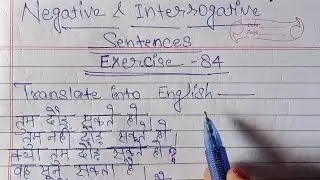 Negative & Interrogative
Sentences
Exercise - 84
Translate into English —
तुम दौड़ सकते हो।
तुम नहीं दौड़ सकते हो।
क्या तुम दौड़ सकते हो?
वह सुन सकता है।